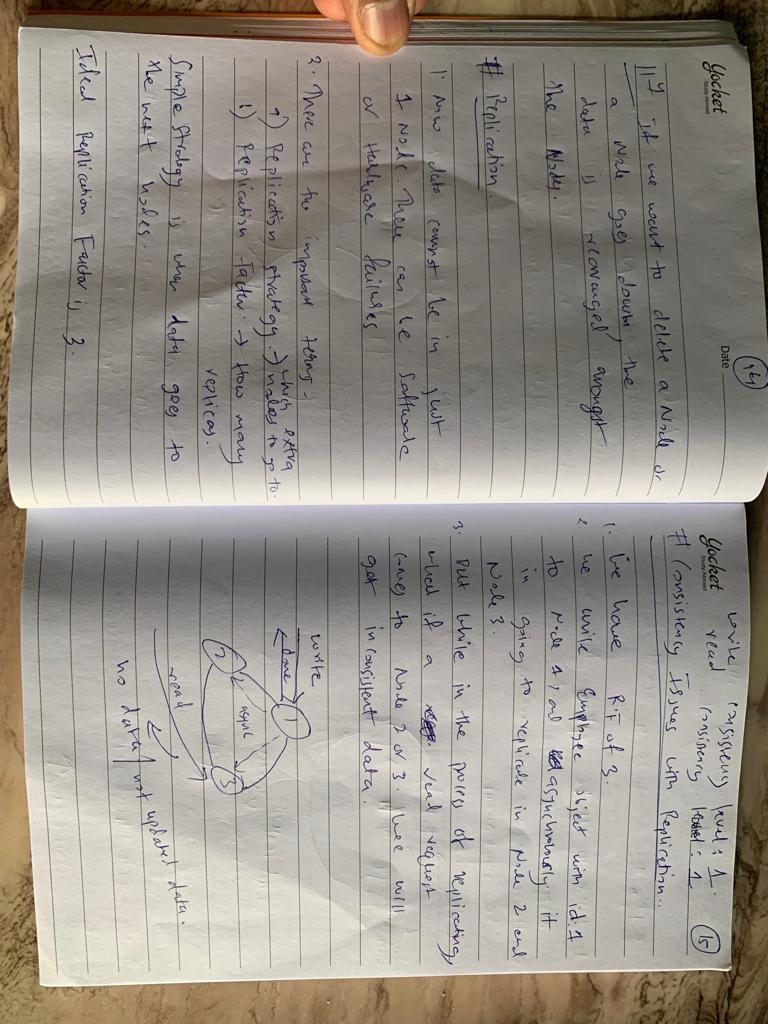 14
yocket
Study Abroad
Date
111y if we want to delete a Node or
a Node goes down, the
data is rearranged amongst
the Nodes.
# Replication.
1. Now data cannot be in just
1 Node. There can be Software
or Hardware failures
2. There are two important terms.
a) Replication strategy. → which extra
nodes to go to.
b) Replication Factor. → How many
replicas.
Simple Strategy is when data goes to
the next nodes.
Ideal Replication Factor is 3.
yocket
Study Abroad
write consistency level : 1.
read consistency level : 1
15
# Consistency Issues with Replication..
1. We have R.F of 3.
2. We write Employee object with id:1
to Node 1, and asynchronously it
in going to replicate in Node 2 and
Node 3.
3. But while in the process of replicating,
what if a read request
comes to Node 2 or 3. Wee will
get inconsistent data.
write
done
1
async
2
3
read
no data / not updated data.